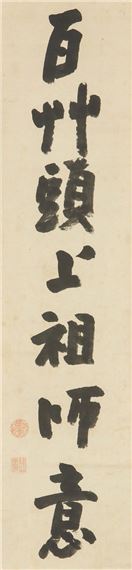 百艸頭上祖師意